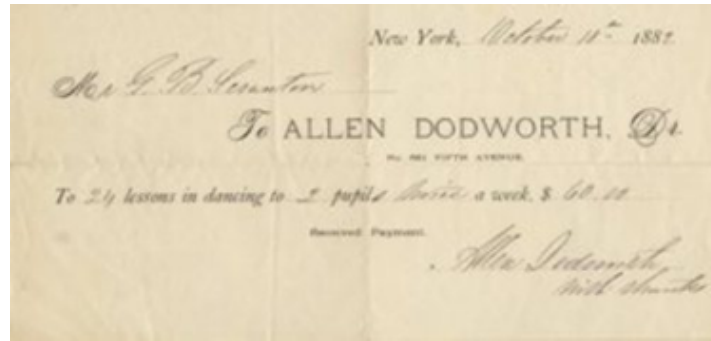 New York, October 18th 1882
Mr G. B. Scranton
To ALLEN DODWORTH, Dr.
No. 681 FIFTH AVENUE.
To 24 lessons in dancing to 2 pupils twice a week, $ 60.00
Received Payment.
Allen Dodworth
with thanks